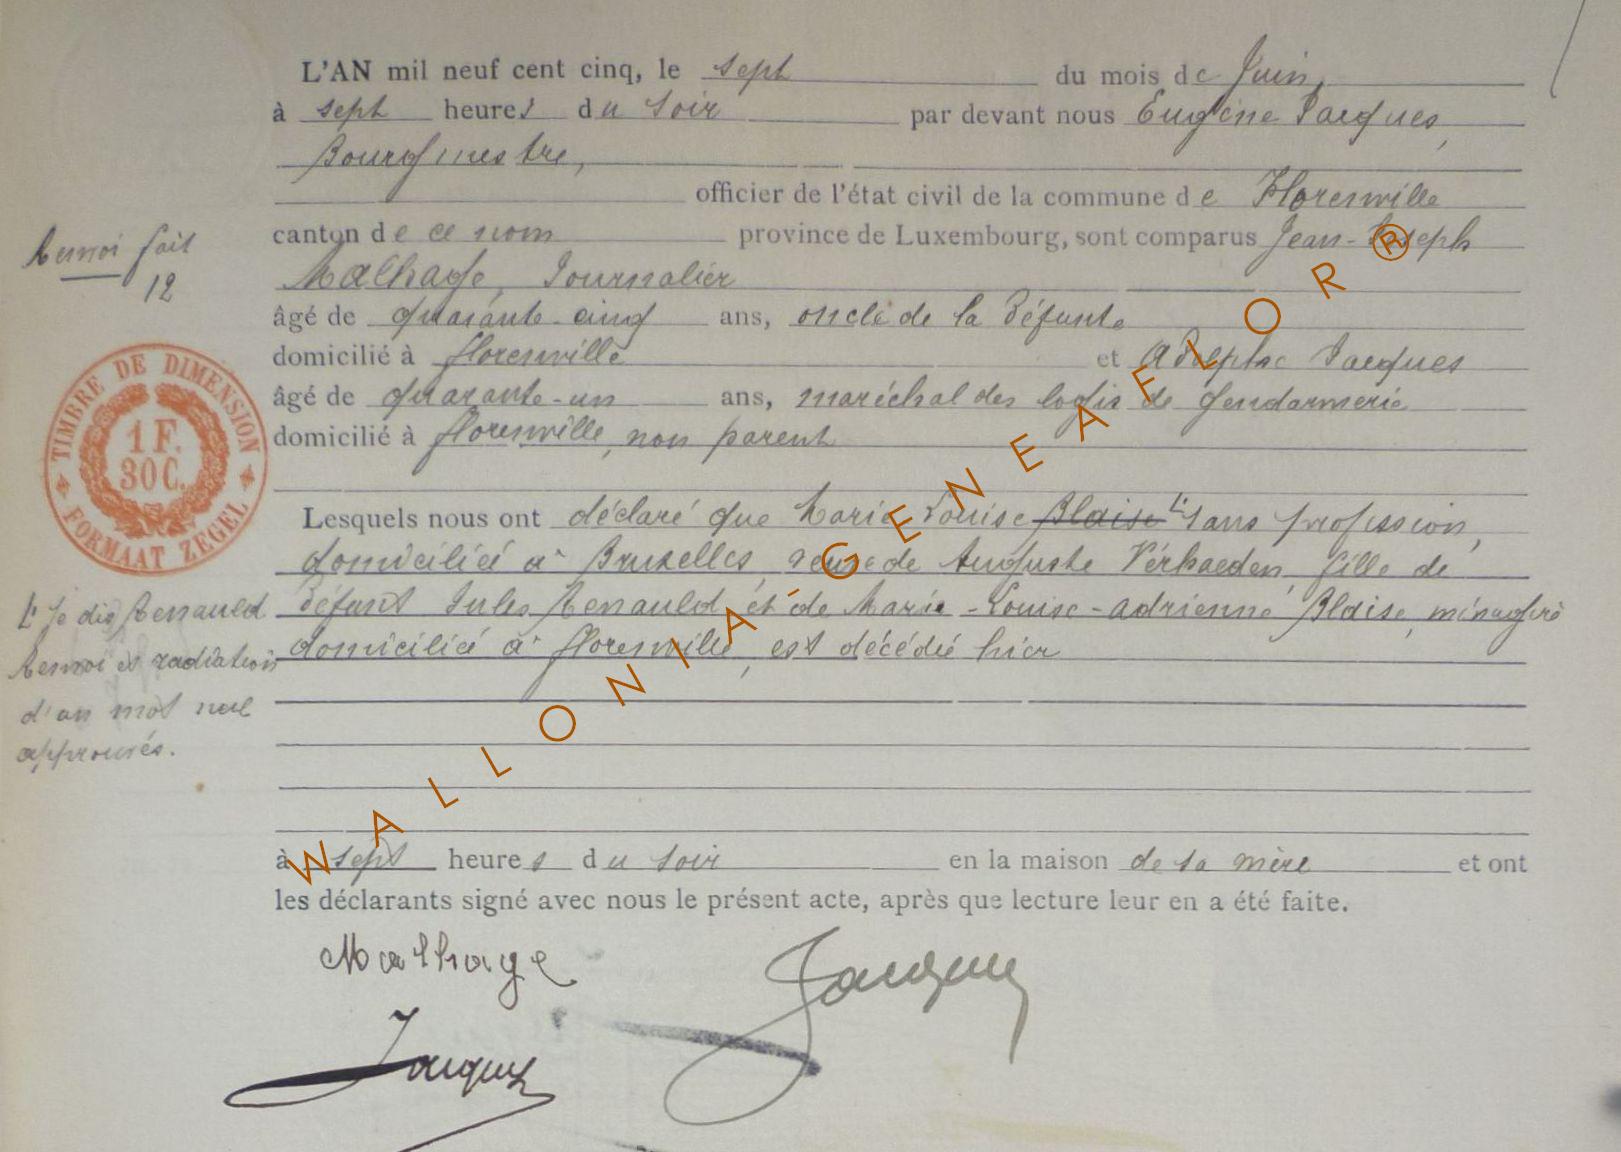 L'AN mil neuf cent cinq, le sept du mois de Juin,
à sept heures du soir par devant nous Eugène Jacques,
Bourgmestre,
officier de l'état civil de la commune de Florenville
canton de ce nom province de Luxembourg, sont comparus Jean-Joseph
Malhage, Journalier
âgé de quarante-cinq ans, oncle de la défunte
domicilié à florenville et Adolphe Jacques
âgé de quarante-un ans, maréchal des logis de gendarmerie
domicilié à florenville, non parent
Lesquels nous ont déclaré que Marie Louise Blaise L' sans profession,
domiciliée à Bruxelles, veuve de Auguste Verhaeden, fille de
défunt Jules Renauld et de Marie-Louise-adrienne Blaise, ménagère
domiciliée à florenville, est décédée hier
à sept heures du soir en la maison de sa mère et ont
les déclarants signé avec nous le présent acte, après que lecture leur en a été faite.
Malhage
Jacques
Jacques
Renvoi fait
12
TIMBRE DE DIMENSION
1 F.
30 C.
FORMAAT ZEGEL
L' Je dis Renauld
Renvoi et radiation
d'un mot nul
approuvés.
WALLONIA-GENEAFLOR®